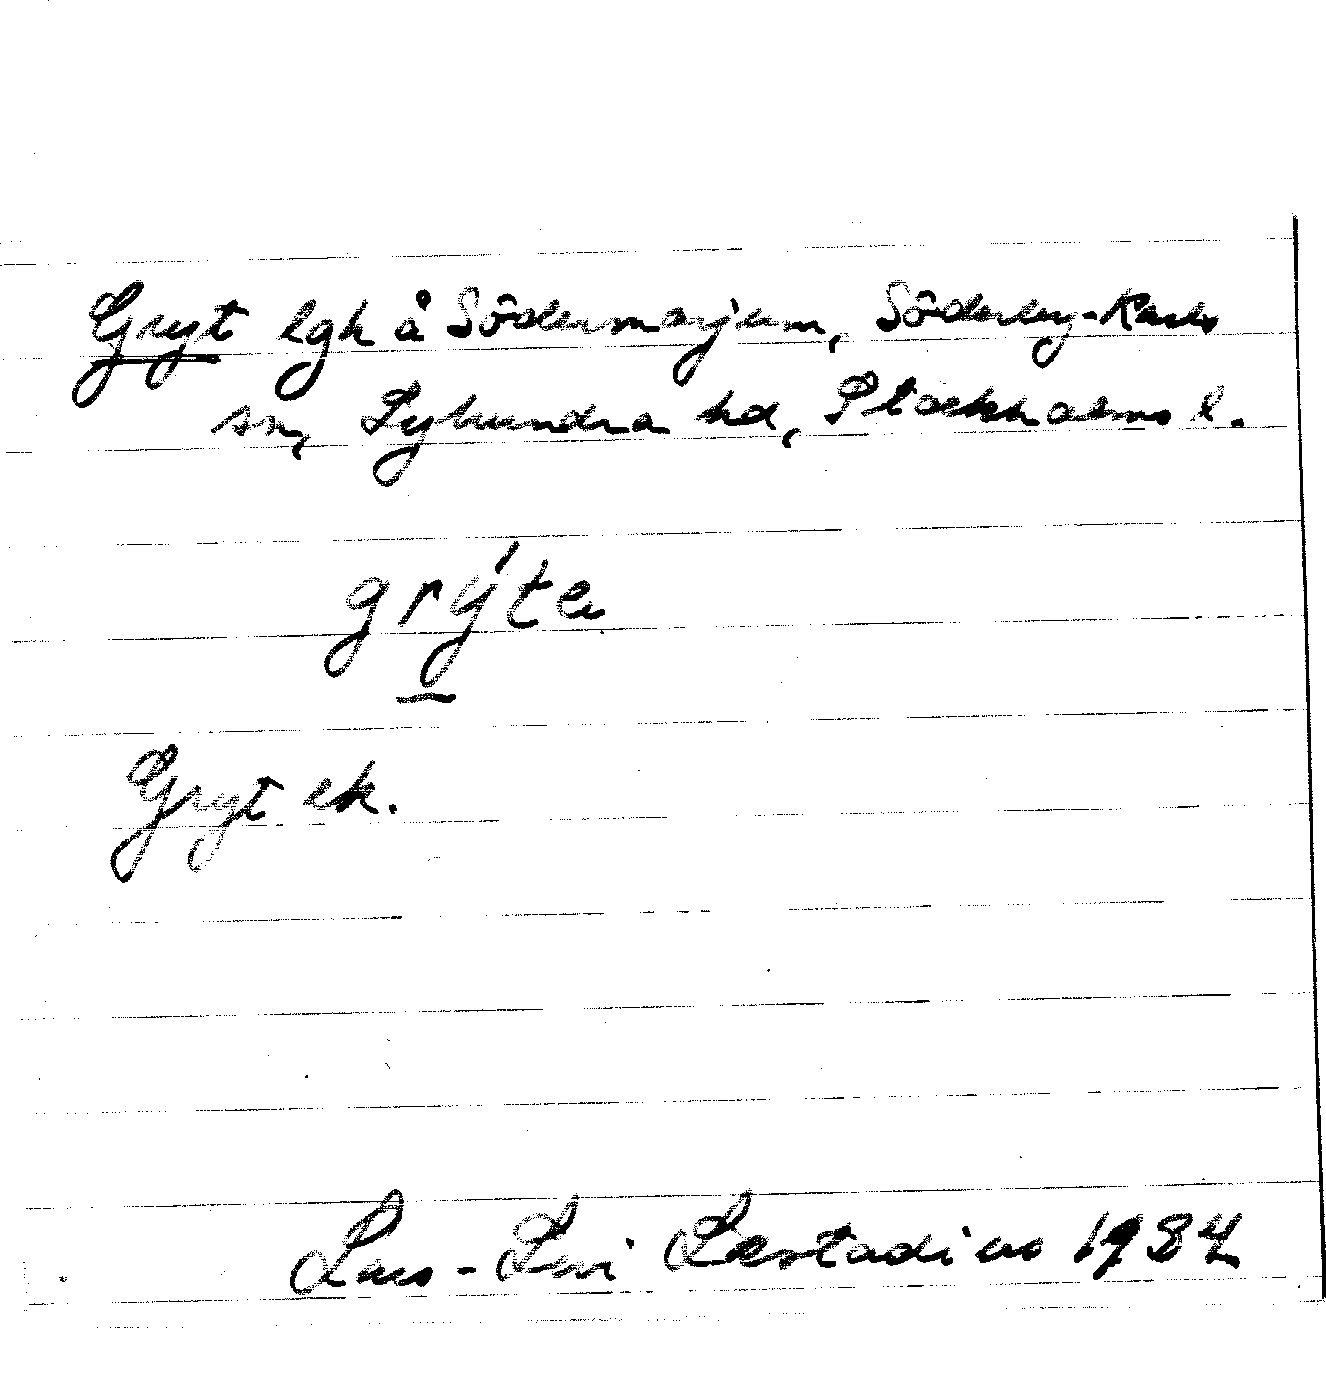 Gryt lgh å Södermarjum, Söderby-Karls
sn, Lyhundra hd, Stockholms l.
grýta
Gryt ek.
Lars-Levi Læstadius 1984